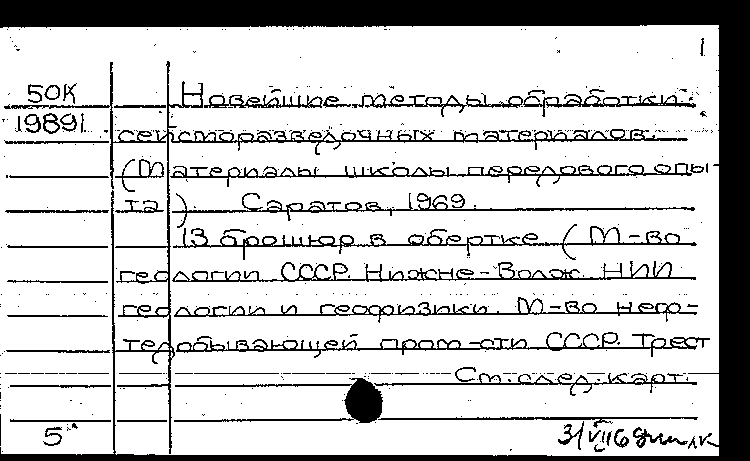 1
50К Новейшие методы обработки
19891 сейсморазведочных материалов.
(Материалы школы передового опы-
та). Саратов, 1969.
13 брошюр в обертке (М-во
геологии СССР. Нижне-Волж. НИИ
геологии и геофизики. М-во неф-
тедобывающей пром-сти СССР. Трест
См. след. карт.
5